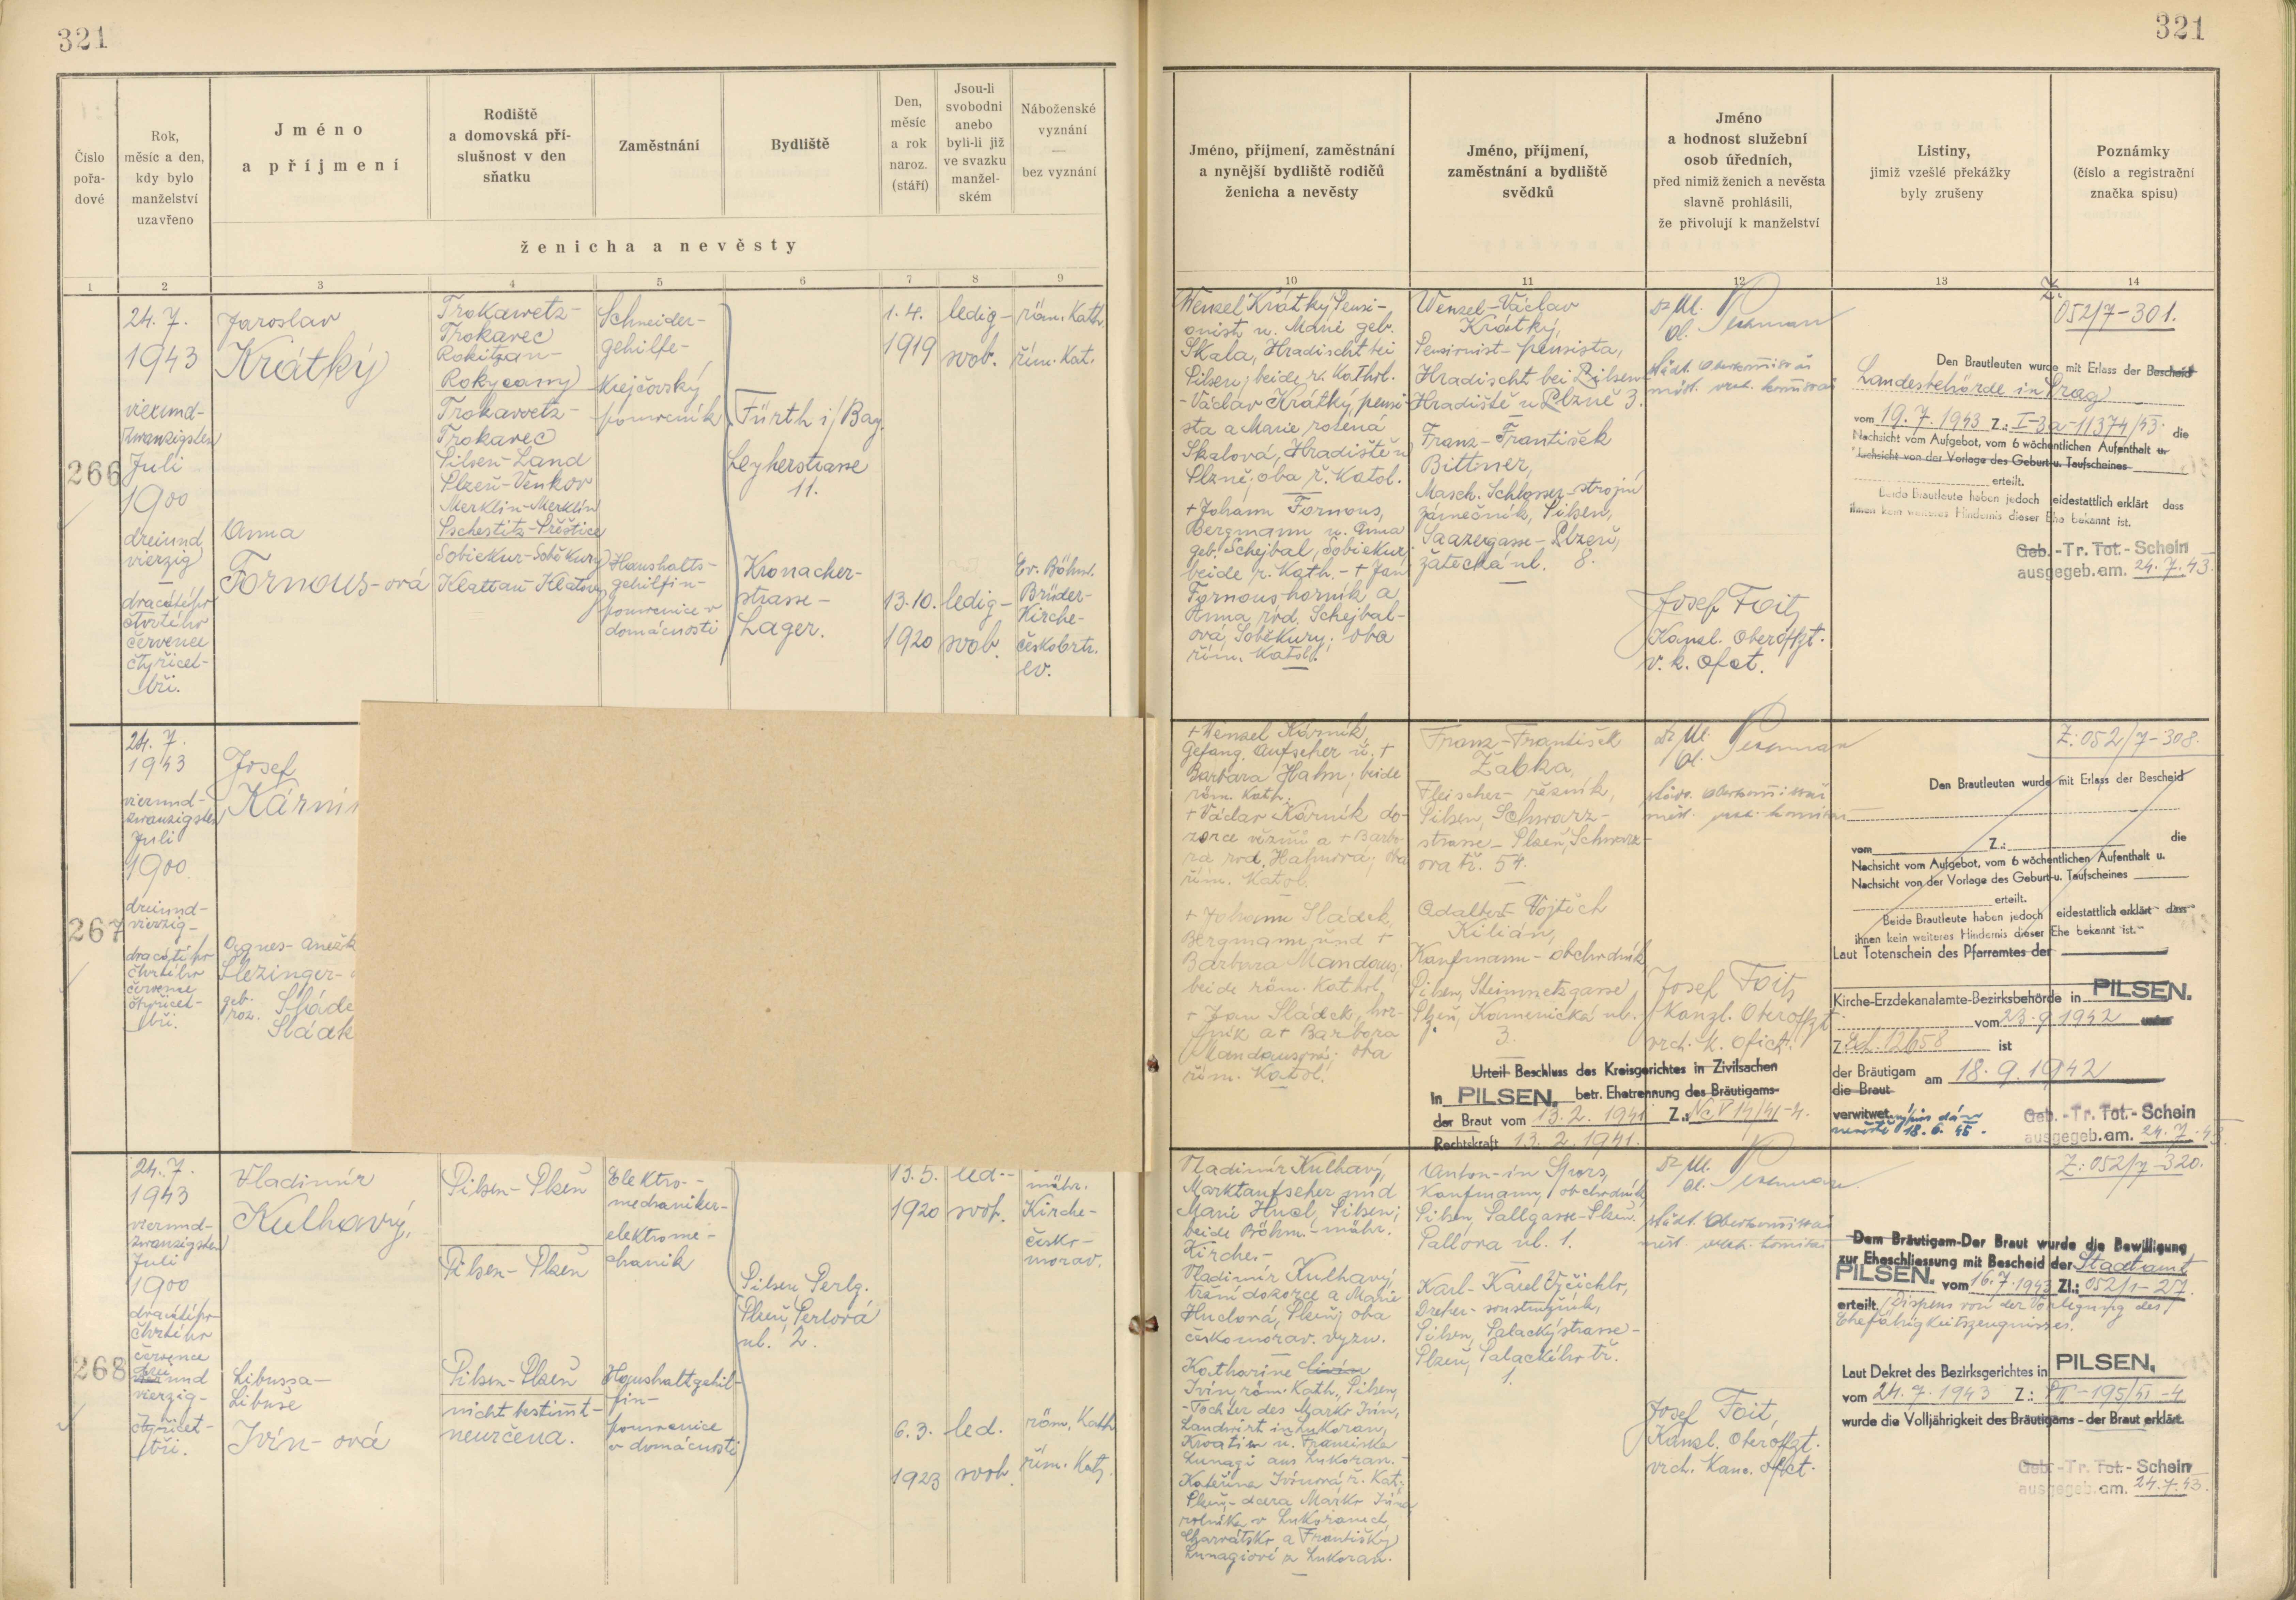 321
321
Číslo
pořa-
dové
Rok,
měsíc a den,
kdy bylo
manželství
uzavřeno
Jméno
a příjmení
Rodiště
a domovská pří-
slušnost v den
sňatku
Zaměstnání
Bydliště
Den,
měsíc
a rok
naroz.
(stáří)
Jsou-li
svobodni
anebo
byli-li již
ve svazku
manžel-
ském
Náboženské
vyznání
—
bez vyznání
ženicha a nevěsty
Jméno, příjmení, zaměstnání
a nynější bydliště rodičů
ženicha a nevěsty
Jméno, příjmení,
zaměstnání a bydliště
svědků
Jméno
a hodnost služební
osob úředních,
před nimiž ženich a nevěsta
slavně prohlásili,
že přivolují k manželství
Listiny,
jimiž vzešlé překážky
byly zrušeny
Poznámky
(číslo a registrační
značka spisu)
1 2 3 4 5 6 7 8 9 10 11 12 13 14
266
24. 7.
1943
vierund-
zwanzigsten
Juli
1900
dreiund
vierzig
—
dvacátého
čtvrtého
července
čtyřicet-
tři.
Jaroslav
Krátký
Anna
Fornous-ová
Trokawetz-
Trokavec
Rokitzan-
Rokycany
Trokawetz-
Trokavec
Pilsen-Land
Plzeň-Venkov
Merklin-Merklín
Pschestitz-Přeštice
Sobiekur-Soběkury
Klattau Klatovy
Schneider-
gehilfe-
Krejčovský
pomocník
Haushalts-
gehilfin-
pomocnice v
domácnosti
Fürth i/Bay.
Leyherstrasse
11.
Kronacher-
strasse-
Lager.
1. 4.
1919
13. 10.
1920
ledig-
svob.
ledig-
svob.
röm. Kath.
řím. Kat.
Ev. Böhm.
Brüder-
Kirche-
českobrtr.
ev.
Wenzel Krátký Pensi-
onist u. Marie geb.
Skala, Hradischt bei
Pilsen; beide r. Kathol.
-Václav Krátký, pensi-
sta a Marie rozená
Skalová, Hradiště u
Plzně; oba ř. Katol.
+ Johann Fornous,
Bergmann u. Anna
geb. Schejbal, Sobiekur
beide r. Kath. - + Jan
Fornous horník a
Anna rod. Schejbal-
ová, Soběkury; oba
řím. Katol.
Wenzel-Václav
Krátký,
Pensionist- pensista,
Hradischt bei Pilsen-
Hradiště u Plzně 3.
Franz-František
Bittner,
Masch. Schlosser-strojní
zámečník, Pilsen,
Saazergasse- Plzeň,
žatecká ul. 8.
Josef Foit,
Kanzl. Oberoffzt.
v. k. ofct.
Z.
052/7-301.
Den Brautleuten wurde mit Erlass der Bescheid
Landesbehörde in Prag
vom 19. 7. 1943 Z.: I-3a-11374/43. die
Nachsicht vom Aufgebot, vom 6 wöchentlichen Aufenthalt u.
Nachsicht von der Vorlage des Geburt-u. Taufscheines
erteilt.
Beide Brautleute haben jedoch eidestattlich erklärt dass
ihnen kein weiteres Hindernis dieser Ehe bekannt ist.
Geb.-Tr. Tot.-Schein
ausgegeb.am. 24. 7. 43.
267
24. 7.
1943
vierund-
zwanzigsten
Juli
1900
dreiund-
vierzig-
dvacátého
čtvrtého
července
čtyřicet-
tři.
Josef
Kární
Agnes- Anežk
Slezinger-
geb. Sláde
roz. Sládk
+ Wenzel Kárník,
Gefang. Aufseher u. +
Barbara Hahn; beide
röm. Kath.
+ Václav Kárník do-
zorce věznů a + Barbo-
ra rod. Hahnová; oba
řím. Katol.
+ Johann Sládek,
Bergmann und +
Barbora Mandous;
beide röm. Kathol.
+ Jan Sládek, hor-
ník a + Barbora
Mandousová; oba
řím. Katol.
Franz-František
Žabka,
Fleischer- řezník,
Pilsen, Schwarz-
strasse- Plzeň, Schwarz-
ova tř. 54.
Adalbert- Vojtěch
Kilián,
Kaufmann- obchodník
Pilsen, Steinmetzgasse
Plzeň, Kamenická ul.
3.
Urteil-Beschluss des Kreisgerichtes in Zivilsachen
in PILSEN. betr. Ehetrennung des Bräutigams-
der Braut vom 13. 2. 1941 Z.: Nc V 14/41-4.
Rechtskraft 13. 2. 1941.
Josef Foit,
Kanzl. Oberoffzt.
vrch. k. ofict.
Z: 052/7-308.
Den Brautleuten wurde mit Erlass der Bescheid
vom Z.: die
Nachsicht vom Aufgebot, vom 6 wöchentlichen Aufenthalt u.
Nachsicht von der Vorlage des Geburt-u. Taufscheines
erteilt.
Beide Brautleute haben jedoch eidestattlich erklärt dass
ihnen kein weiteres Hindernis dieser Ehe bekannt ist.
Laut Totenschein des Pfarramtes der
Kirche-Erzdekanalamte-Bezirksbehörde in PILSEN.
vom 23. 9. 1942 unter
Z. 12658 ist
der Bräutigam
die Braut am 18. 9. 1942
verwitwet
18. 6. 45.
Geb.-Tr. Tot.-Schein
ausgegeb.am. 24. 7. 43.
268
24. 7.
1943
vierund-
zwanzigsten
Juli
1900
dvacátého
čtvrtého
července
dreiund
vierzig-
čtyřicet-
tři.
Vladimír
Kulhavý,
Libussa-
Libuše
Ivín-ová
Pilsen-Plzeň
Pilsen-Plzeň
Pilsen-Plzeň
nicht bestimt-
neurčena.
Elektro-
mechaniker-
elektrome-
chanik
Haushaltgehil-
fin-
pomocnice
v domácnosti
Pilsen, Perlg.
Plzeň, Perlová
ul. 2.
13. 5.
1920
6. 3.
1923
led.-
svob.
led.
svob.
mähr.
Kirche-
česko-
morav.
röm. Kath
řím. Kat.
Vladimír Kulhavý,
Marktaufseher und
Marie Hucl, Pilsen;
beide Böhm.-mähr.
Kirche.-
Vladimír Kulhavý,
tržní dozorce a Marie
Huclová, Plzeň; oba
českomorav. vyzn.
Katharine
Ivín, röm. Kath., Pilsen,
-Tochter des Marko Ivín,
Landwirt in Lukoran,
Kroatien u. Franciska
Lunagi aus Lukoran.-
Kateřina Ivínová ř. Kat.
Plzeň,- dcera Marko Ivína
rolníka v Lukoranech,
Charvátsko a Františky
Lunagiové z Lukoran.
Anton-ín Spors,
Kaufmann, obchodník
Pilsen, Pallgasse-Plzeň.
Pallova ul. 1.
Karl-Karel Vyčichlo,
Dreher- soustružník,
Pilsen, Palackýstrasse-
Plzeň, Palackého tř.
1.
Josef Foit,
Kanzl. Oberoffzt.
vrch. Kanc. ofict.
Z: 052/7-320.
Dem Bräutigam-Der Braut wurde die Bewilligung
zur Eheschliessung mit Bescheid der Stadtamt
PILSEN. vom 16. 7. 1943 Zl.: 052/1-27.
erteilt. (Dispens von der Vorlegung des
Ehefähigkeitszeugnisses.
Laut Dekret des Bezirksgerichtes in PILSEN.
vom 24. 7. 1943 Z.: -195/41-4
wurde die Volljährigkeit des Bräutigams - der Braut erklärt.
Geb.-Tr. Tot.-Schein
ausgegeb.am. 24. 7. 43.